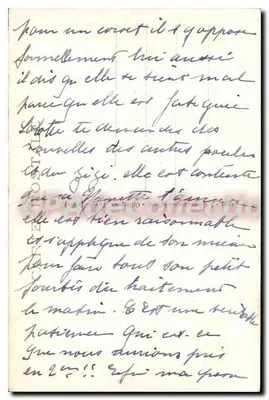 pour un corset il s'y oppose
formellement lui aussi
il dis qu'elle se tient mal
parce qu'elle est fatiguée
te demande des
nouvelles des autres poules
et du zizi. elle est contente
que sa t'amuse
elle est bien raisonnable
et s'applique de son mieux
pour faire tout son petit
fourbis du traitement
le matin. C'est une véritable
patience Qui est-ce
que nous aurions pris
en 2em!! Enfin ma
CARTE POSTALE